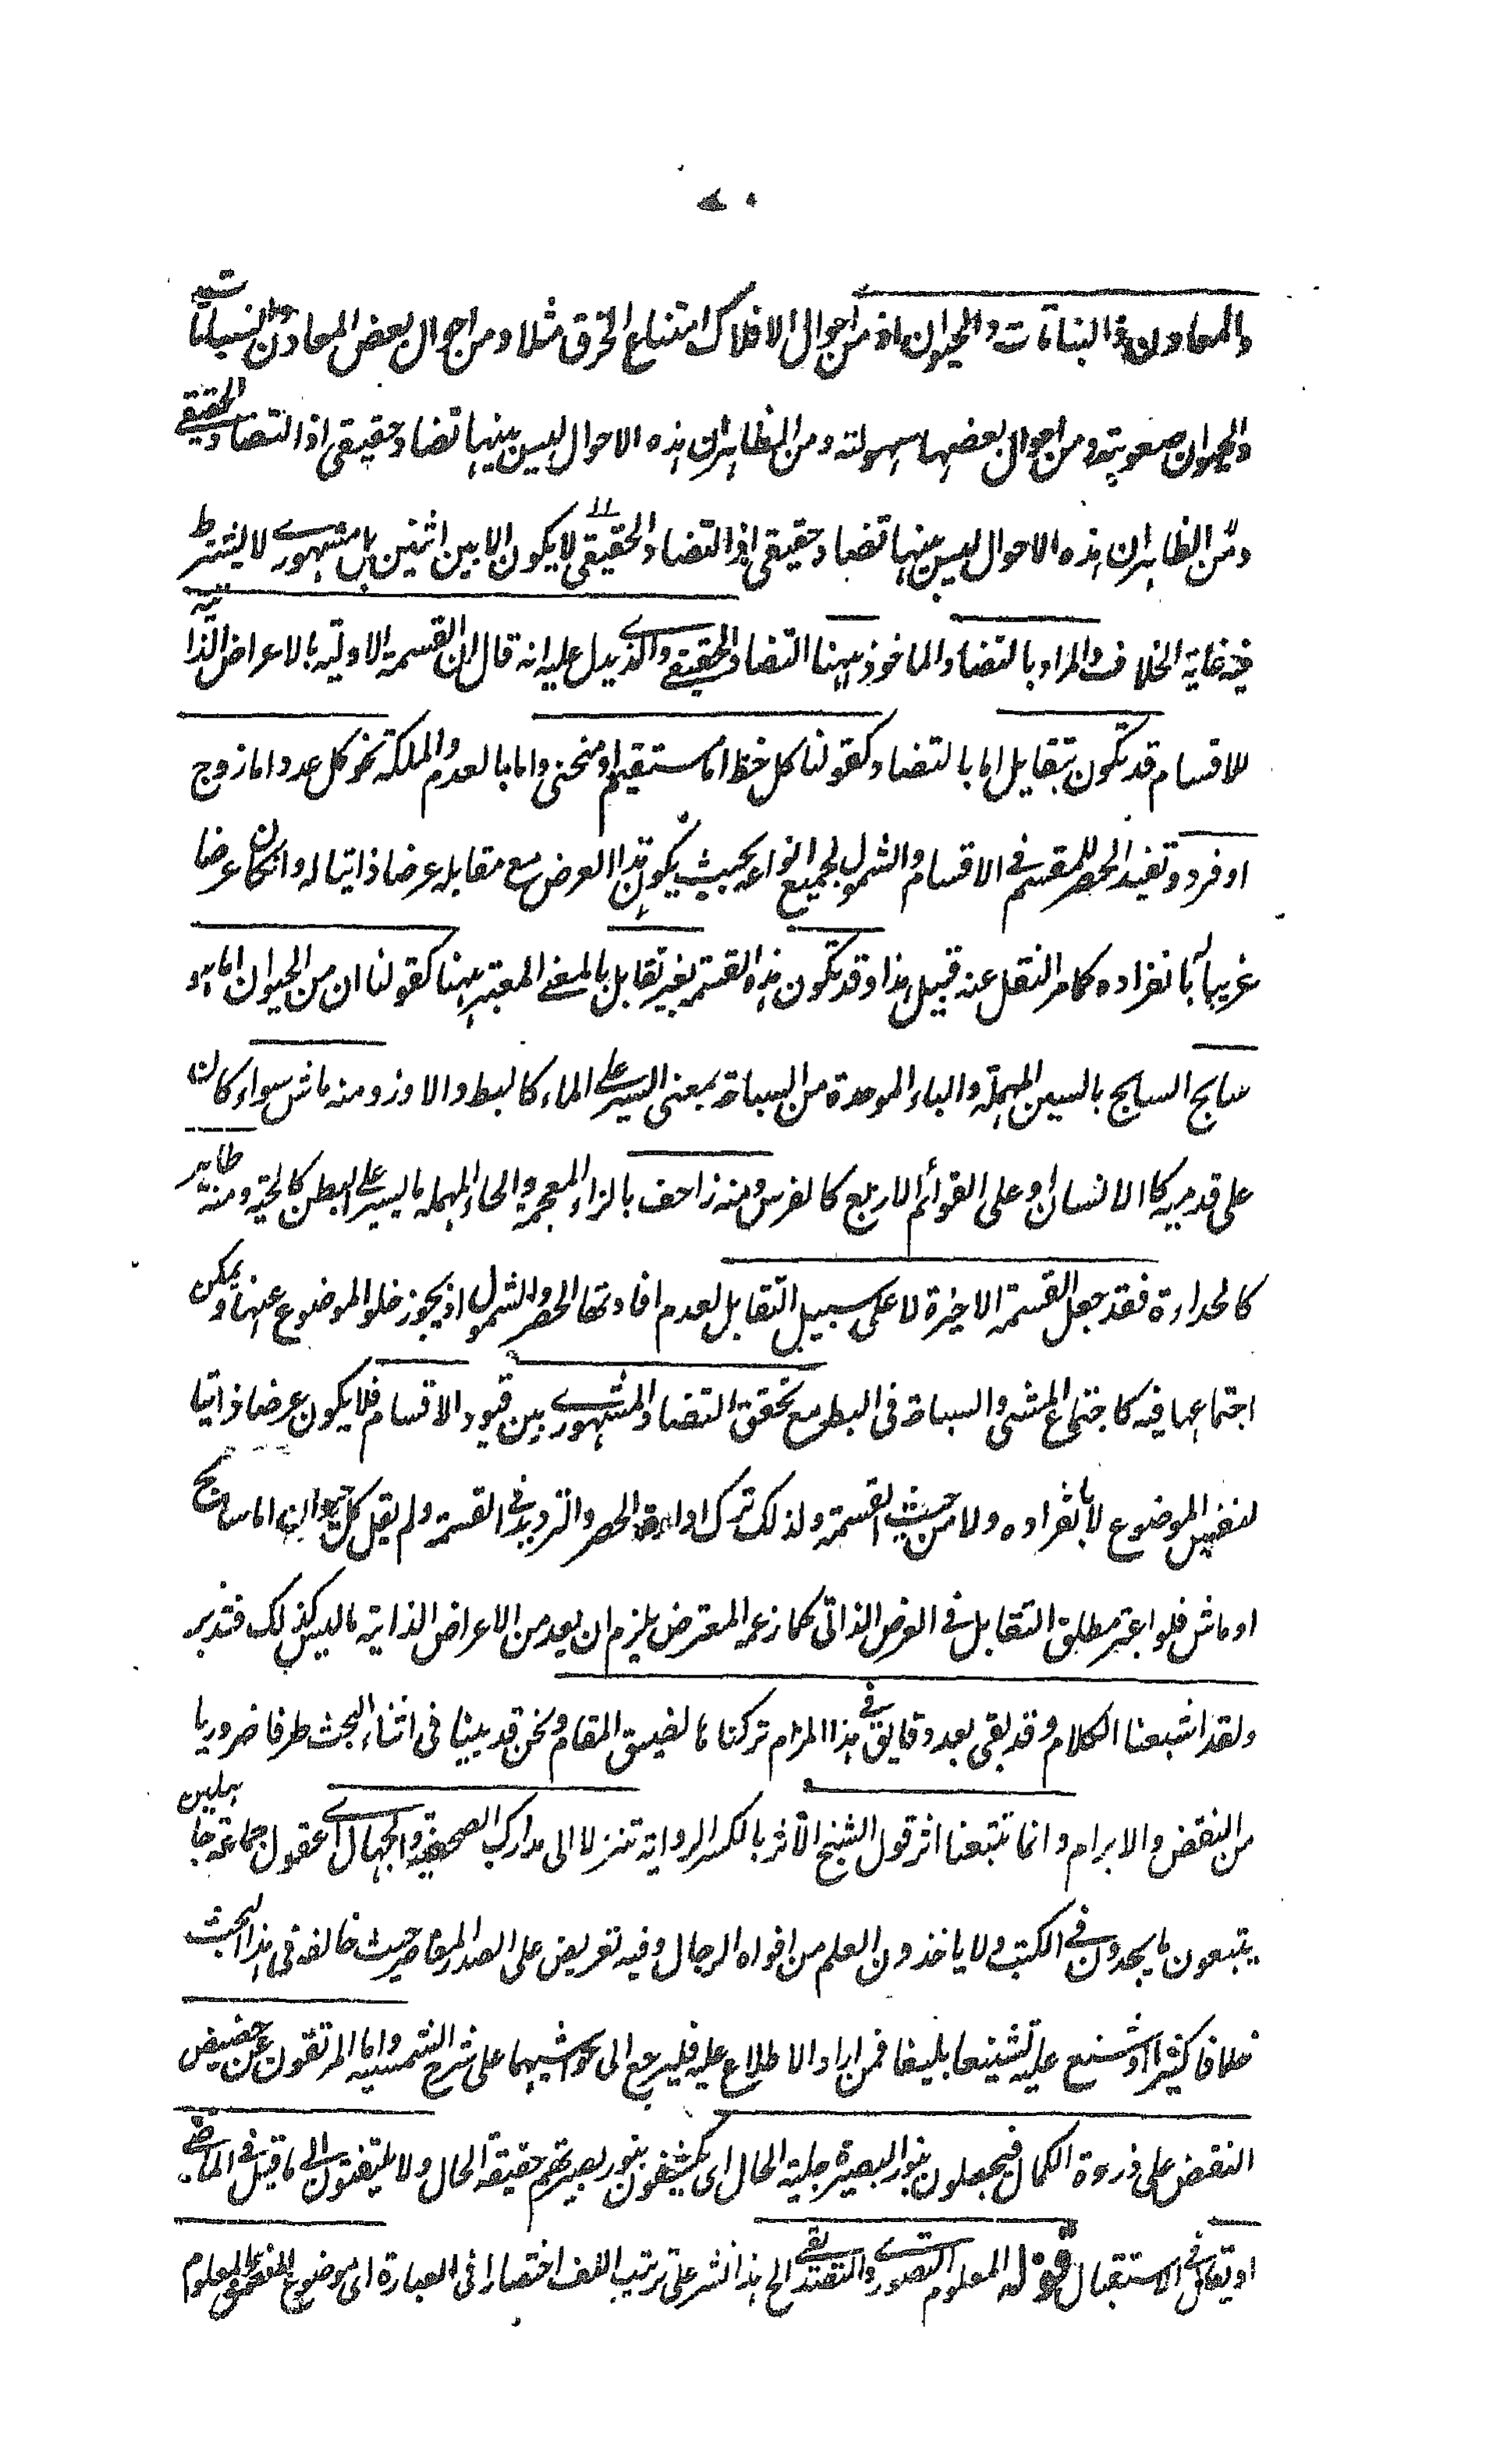 والمعادن والنباتات والحيوان اذ من احوال الافلاك امتناع الخرق مثلا ومن احوال بعض المعادن والنباتات
والحيوان صعوبته ومن احوال بعضها سهولته ومن الظاهران هذه الاحوال ليس بينها تضاد حقيقى اذ التضاد الحقيقے
ومن الظاهران هذه الاحوال ليس بينها تضاد حقيقى اذ التضاد الحقيقى لا يكون الا بين اثنين بل مشهورے لا يشترط
فيه غاية الخلاف والمراد بالتضاد الماخوذ ههنا التضاد الحقيقے والذے يدل عليه انه قال ان القسمة الاولية بالاعراض الذاتية
للاقسام قد تكون بتقابل اما بالتضاد كقولنا كل خط اما مستقيم او منحنى واما بالعدم والملكة نحو كل عدد اما زوج
او فرد وتفيد الحصر للمقسم فى الاقسام والشمول لجميع انواعه بحيث يكون هذا العرض مع مقابله عرضا ذاتيا له وانكان عرضا
غريبا بانفراده كما مر النقل عنه قبيل هذا وقد تكون هذه القسمة بغير تقابل بالمعنے المعتبر ههنا كقولنا ان من الحيوان اما هو
سابح السابح بالسين المهملة والباء الموحدة من السباحة بمعنى السير على الماء كالبط والاوز ومنه ماش سواء كان
على قدميه كالانسان او على القوائم الاربع كالفرس ومنه زاحف بالزاء المعجمة والحاء المهملة ما يسير على البطن كالحية ومنه طائر
كالحداءة فقد جعل القسمة الاخيرة لا على سبيل التقابل لعدم افادتها الحصر والشمول اذ يجوز خلو الموضوع عنها ويمكن
اجتماعها فيه كاجتماع المشى والسباحة فى البط مع تحقق التضاد المشهورے بين قيود الاقسام فلا يكون عرضا ذاتيا
لنفس الموضوع لا بانفراده ولا من حيث القسمة ولذلك ترك اداة الحصر والترديد فى القسمة ولم يقل كل حيوان اما سابح
او ماش فلو اعتبر مطلق التقابل فى العرض الذاتى كما زعمه المعترض يلزم ان يعد من الاعراض الذاتية ما ليس كذلك فتدبر
ولقد اشبعنا الكلام وقد بقى بعد دقايق فى هذا المرام تركنا ها لضيق المقام ونحن قد بينا فى اثناء البحث طرفا ضروريا
من النقض والابرام وانما تتبعنا اثر قول الشيخ الاثر بالكسر الرواية تنزلا الى مدارك الصحفية والجهال اے عقول جماعة جاهلين
يتبعون ما يجدون فى الكتب ولا ياخذون العلم من افواه الرجال وفيه تعريض على الصدر المعاصر حيث خالفه فى هذا البحث
خلافا كثيرا وشنع عليه تشنيعا بليغا فمن اراد الاطلاع عليه فليرجع الى حواشيهما على شرح الشمسيه واما المرتقون عن حضيض
النقض على ذروة الكمال فيجعلون بنور البصيرة جلية الحال اى يكشفون بنور بصيرتهم حقيقة الحال ولا يلتفتون الى ما قيل فى الماضے
او يقال فى الاستقبال قوله المعلوم التصورے والتصديقے الخ هذا نشر على ترتيب اللف اختصارا فى العبارة اى موضوع المنطق المعلوم